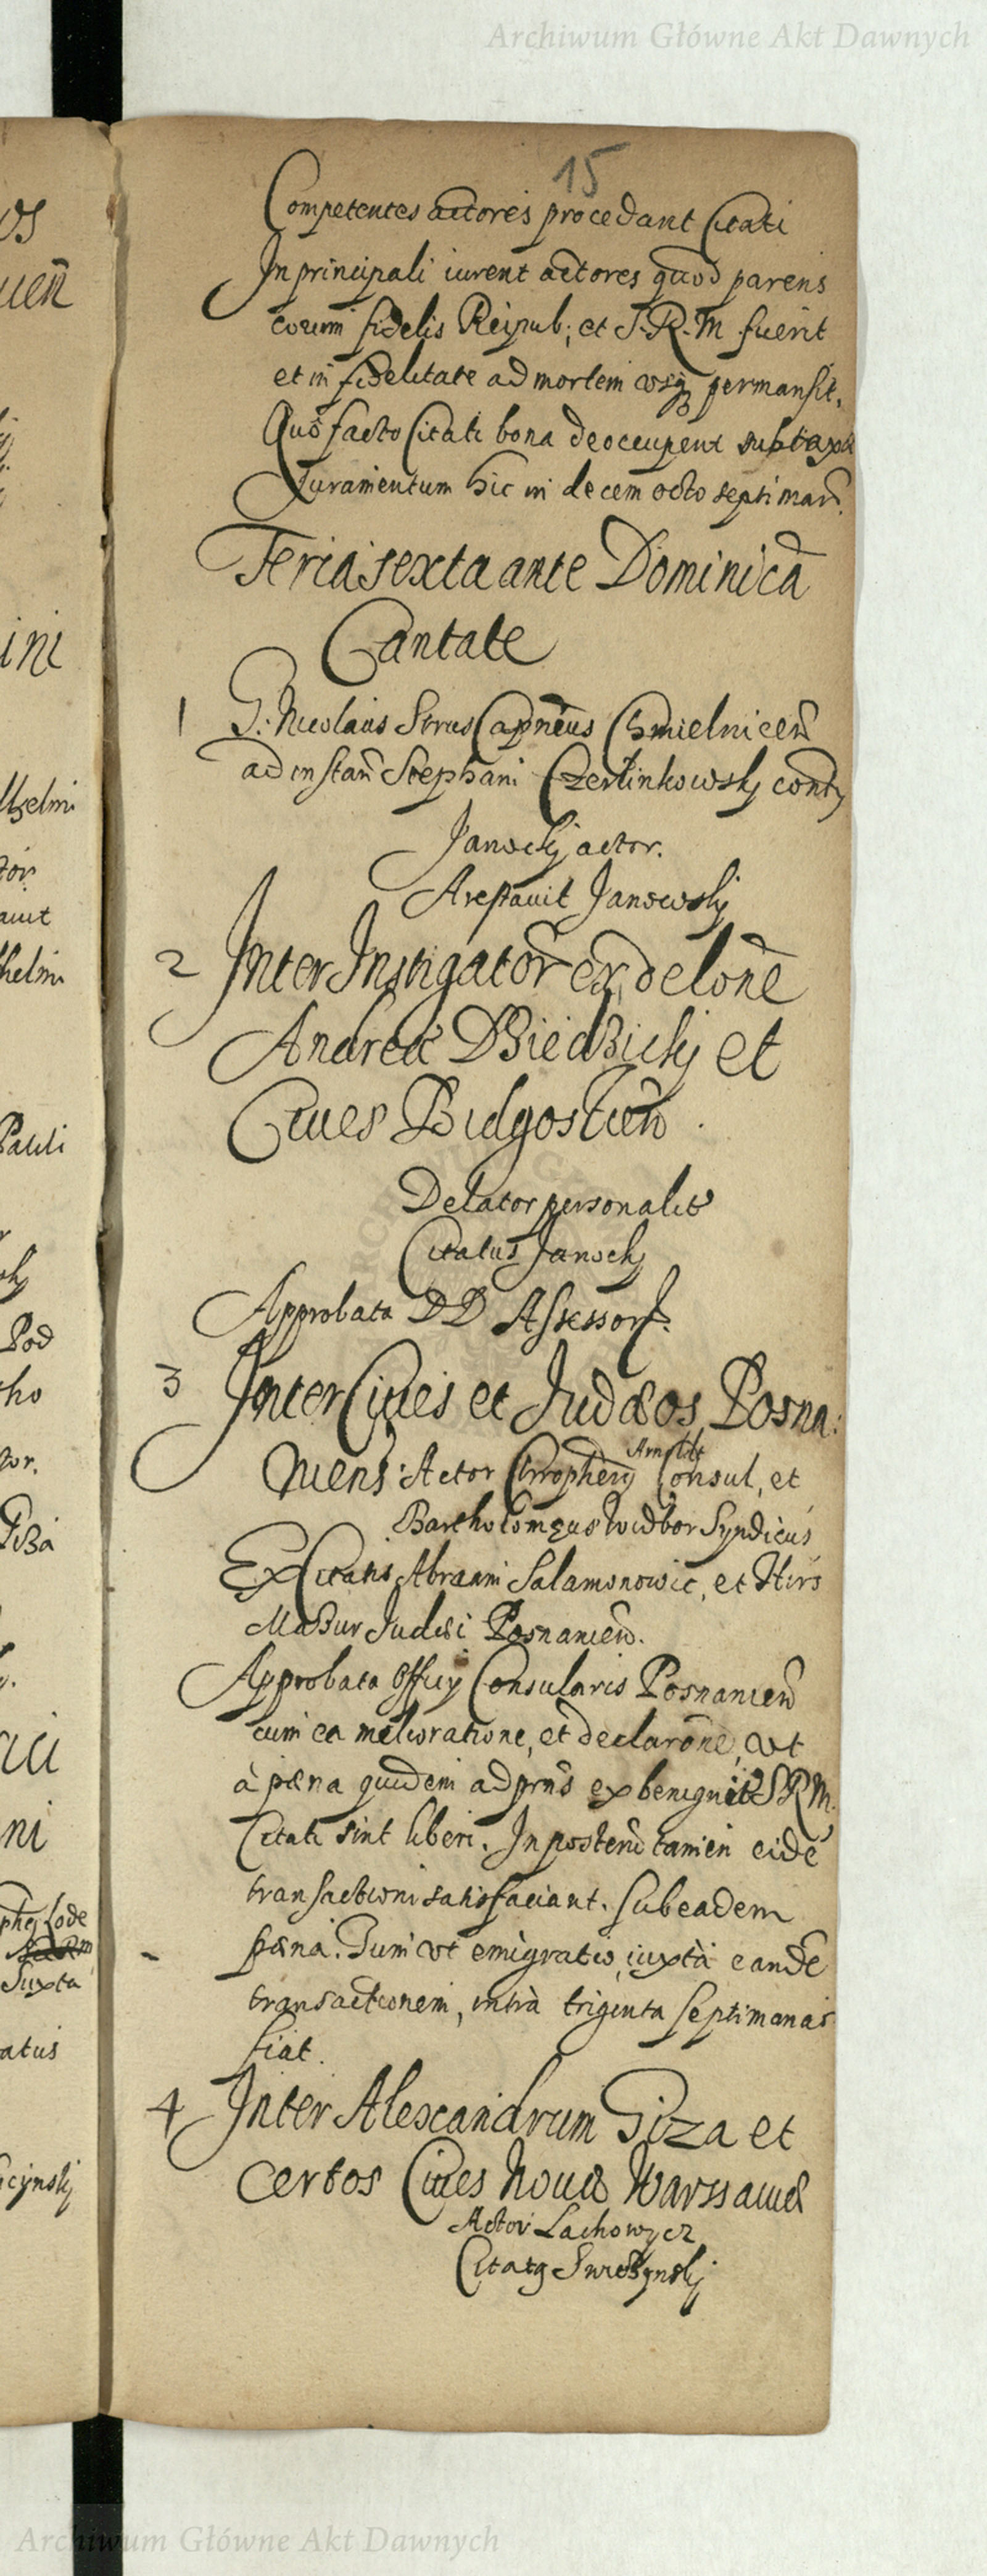 Archiwum Główne Akt Dawnych
15
Competentes actores procedant Citati
In principali iurent actores quod parens
eorum fidelis Reipub: et S. R. M fuerit
et in fidelitate ad mortem usq permansit.
Quo facto Citati bona deoccupent
Juramentum hic in decem octo septiman.
Feria sexta ante Dominicā
Cantate
1 G. Nicolaus Strus Capneus Chmielnicen
ad instan Stephani Czerlinkowsky cont
Janocky actor.
Arestavit Janowsky
2 Inter Instigatorē ex delone
Andreæ et
Ciues Bidgostien.
Delator personalit
Citatus Janocky
Approbata DD Assessor.
3 Inter Ciues et Judæos Posna:
niens: Actor Arnoldt Consul, et
Bartholomeus Widbor Syndicus
Ex Citatis Abraam Salamonowic, et Hirs
Mazur Judæi Posnanien.
Approbata Officy Consularis Posnanien
cum ea melioratione, et declarone, ut
à pæna quidem ad prns ex benignit S R M.
Citati sint liberi. In posterū tamen eidē
transactioni satisfaciant. Sub eadem
pæna. Tum ut emigratio, iuxtà eandē
transactionem, intrà triginta septimanas
fiat.
4 Inter Alexandrum Giza et
certos Ciues Nouæ Warssauiæ
Actor Lachowycz
Citatq
Archiwum Główne Akt Dawnych